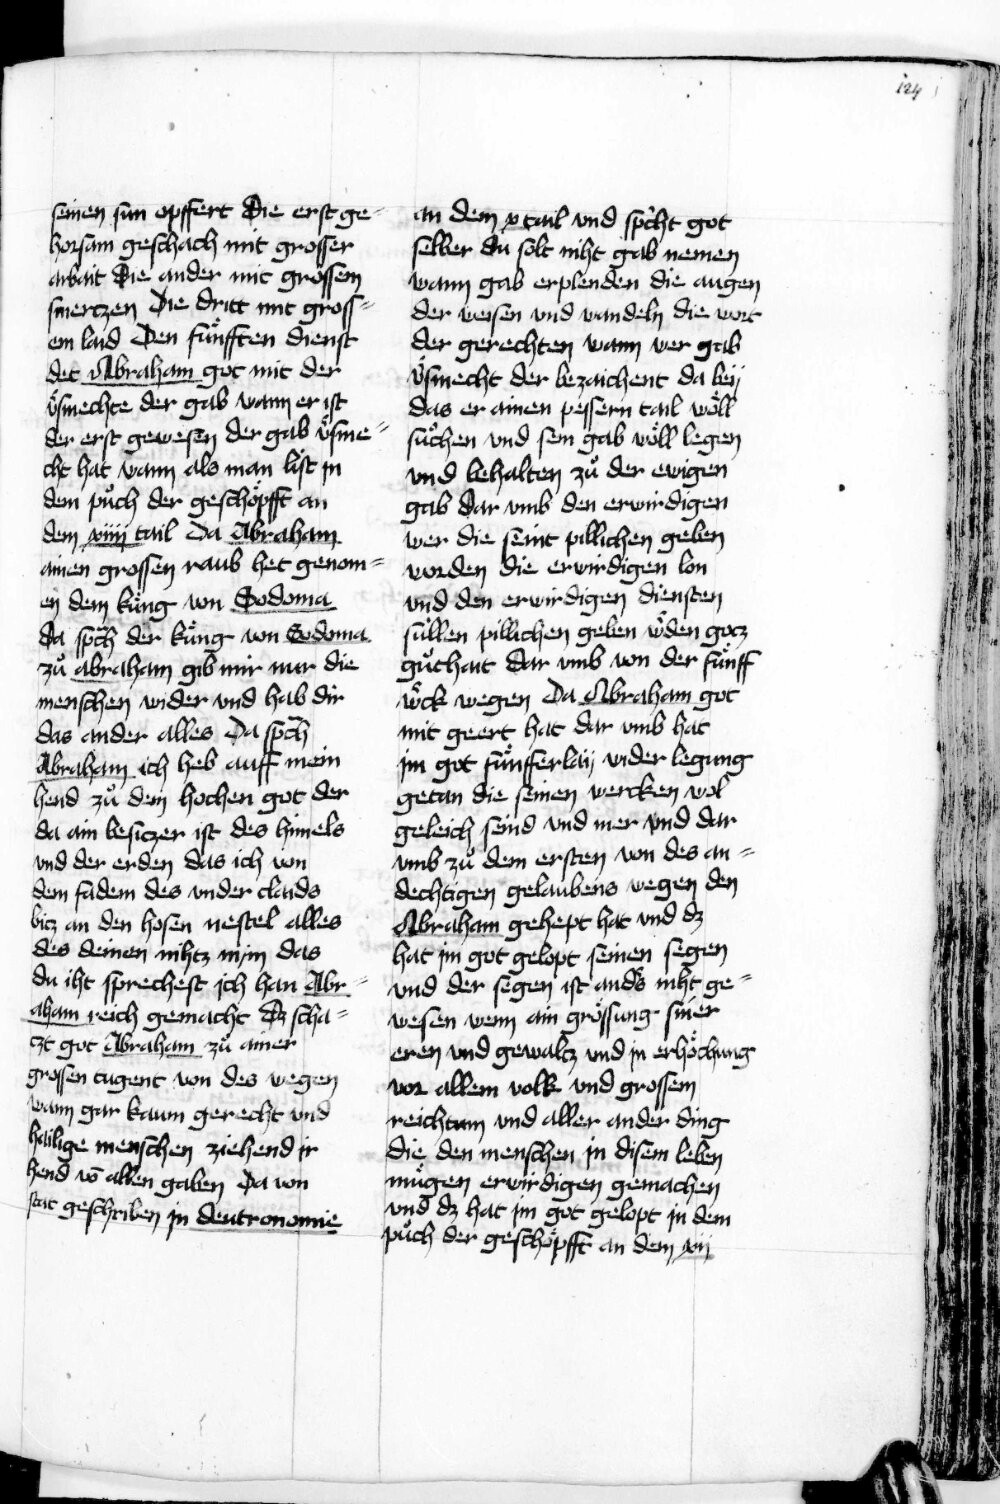 124
seinen sun opffert Die erst ge=
horsam geschach mit grosser
arbait Die ander mit grossem
smertzen Die dritt mit gross=
em laid Den fu̇nfften dienst
det Abraham got mit der
v̈smechte der gab wann er ist
der erst gewesen der gab v̈sme=
cht hat wann als man list in
dem pu̇ch der geschöpfft an
dem xiiij tail Da Abraham
ainen grossen raub het genom=
en dem ku̇ng von Sodoma
da spch̄ der ku̇ng von Sodoma
zu̇ abraham gib mir nur die
menschen wider und hab dir
das ander alles Da spch̄
Abraham ich heb auff mein
hend zu̇ dem hochen got der
da ain besiczer ist des himels
und der erden das ich von
dem fadem des under claids
bicz an den hosen nestel alles
des deinen nihtz nym das
du iht sprechest ich han Abr=
aham reich gemacht Dz scha=
czt got Abraham zu̇ ainer
grossen tugent von des wegen
wann gar kaum gerecht und
hailige menschen ziehend ir
hend vo̅ allen gaben Da von
stat geschriben in deutronomie
an dem x tail und sp̄cht got
selber du solt niht gab nemen
wann gab erplenden die augen
der weisen und wandeln die wort
der gerechten wann wer gab
v̈smecht der bezaichent da beij
das er ainen pessern tail wöll
su̇chen und sein gab wöll legen
und behalten zu̇ der ewigen
gab dar umb den erwirdigen
wer die seint pillichen geben
worden die erwirdigen lon
und den erwirdigen diensten
su̇llen pillichen geben w̄den gocz
gu̇thait dar umb von der fu̇nff
w̄ck wegen Da Abraham got
mit geert hat dar umb hat
im got fu̇nfferlaij wider legung
getan die seinen wercken wol
geleich seind und mer und dar
umb zu̇ dem ersten von des an=
dechtigen gelaubens wegen den
Abraham gehept hat und dz
hat im got gelopt seinen segen
und der segen ist and̄s niht ge=
wesen wenn ain grössung siner
eren und gewaltz und in erhöchung
vor allem volk und grossem
reichtum und aller ander ding
die den menschen in disem leben
mu̇gen erwirdigen gemachen
und dz hat im got gelopt in dem
pu̇ch der geschöpfft an dem xvij